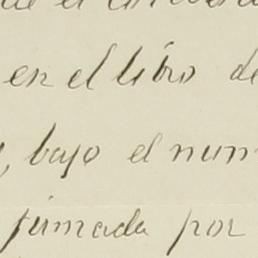 en el libro de
, bajo el num
firmada por